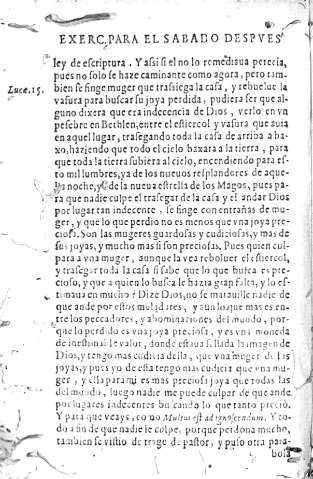 EXERC. PARA EL SABADO DESPVES
ley de escriptura. Y assi si el no lo remediaua perecia,
pues no solo se haze caminante como agora, pero tam-
Luce. 15. bien se finge muger que trasiega la casa, y rebuelue la
vasura para buscar su joya perdida, pudiera ser que al-
guno dixera que era indecencia de Dios, verlo en vn
pesebre en Bethlen, entre el estiercol y vasura que auia
en aquel lugar, trasegando toda la casa de arriba a ba-
xo, haziendo que todo el cielo baxara a la tierra, para
que toda la tierra subiera al cielo, encendiendo para es-
to mil lumbres, ya de los nueuos resplandores de aque-
lla noche, y de la nueua estrella de los Magos, pues pa-
ra que nadie culpe el trasegar de la casa y el andar Dios
por lugar tan indecente, se finge con entrañas de mu-
ger, y que lo que perdio no es menos que vna joya pre-
ciosa. Son las mugeres guardosas y cudiciosas, y mas de
sus joyas, y mucho mas si son preciosas. Pues quien cul-
para a vna muger, aunque la vea reboluer el estiercol,
y trasegar toda la casa si sabe que lo que busca es pre-
cioso, y que a quien lo busca le hazia gran falta, y lo es-
timaua en mucho? Dize Dios, no se marauille nadie de
que ande por estos muladares, y aun lo que mas es en-
tre los peccadores, y abominaciones del mundo, por-
que lo perdido es vna joya preciosa, y es vna moneda
de inestimable valor, donde estaua sellada la imagen de
Dios, y tengo mas cudicia della, que vna muger de las
joyas, y pues yo de esta tengo mas cudicia que vna mu-
ger, y ella para mi es mas preciosa joya que todas las
del mundo, luego nadie me puede culpar de que ande
por lugares indecentes buscando lo que tanto precio.
Y para que veays, como Multus est ad ignoscendum. Y to-
do a fin de que nadie le culpe, porque perdona mucho,
tambien se vistio de trage de pastor, y puso otra para-
bola